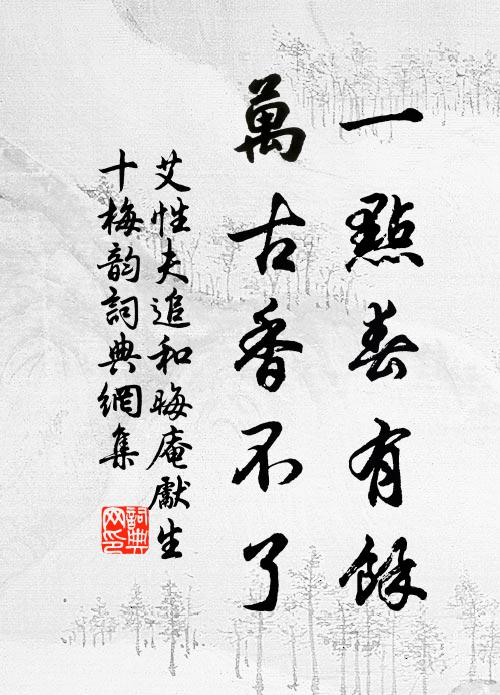 一點春有餘
萬古香不了
艾性夫追和晦庵獻生
十梅韵詞典網集
詞典网印